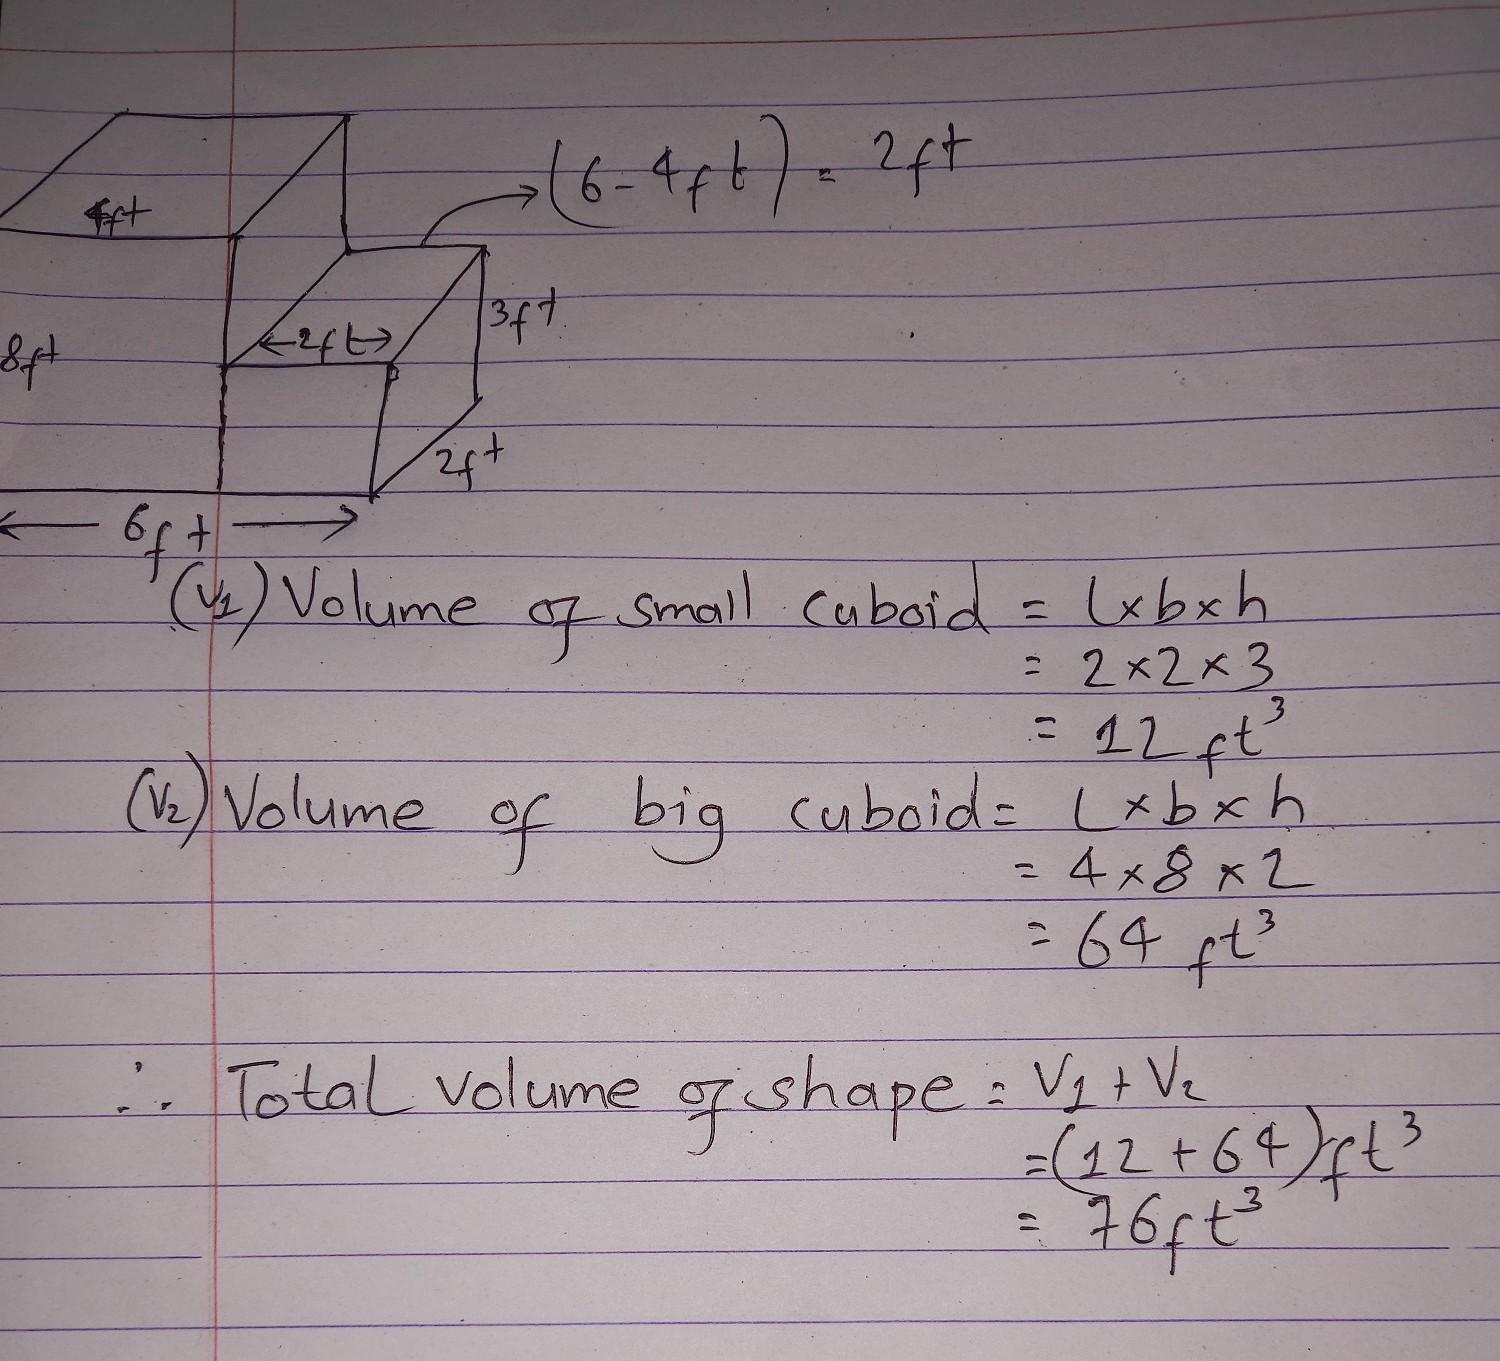 (6-4ft) = 2ft
4ft
3ft
2ft
8ft
2ft
6ft
(V1) Volume of small cuboid = l×b×h
= 2×2×3
= 12 ft³
(V2) Volume of big cuboid = l×b×h
= 4×8×2
= 64 ft³
∴ Total volume of shape = V1 + V2
= (12+64) ft³
= 76ft³